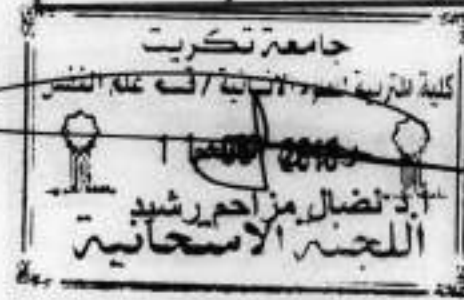 جامعة تكريت
كلية التربية للعلوم الانسانية / قسم علم النفس
أ.د نضال مزاحم رشيد
اللجنة الامتحانية